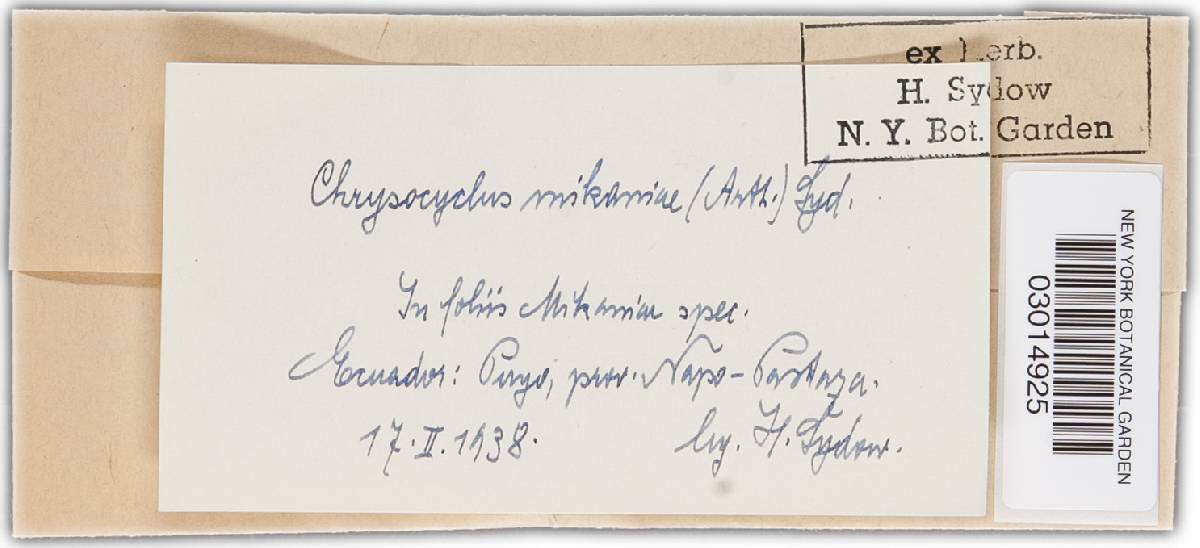 ex Herb.
H. Sydow
N. Y. Bot. Garden
Chrysocyclus mikaniae (Arth.) Syd.
In foliis Mikaniae spec.
Ecuador: Puyo, prov. Napo-Pastaza.
17. II. 1938.
leg. H. Sydow.
NEW YORK BOTANICAL GARDEN
03014925